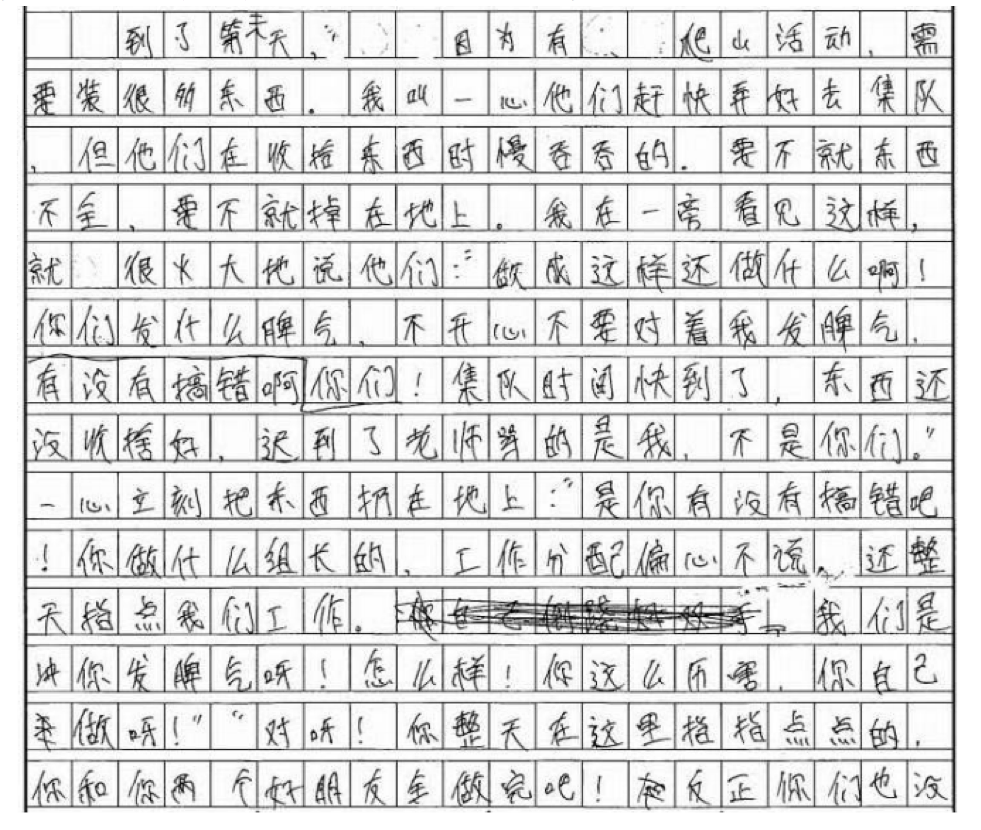 到了第天，因为有爬山活动，需
要装很多东西。我叫一心他们赶快弄好去集队
，但他们在收拾东西时慢吞吞的。要不就东西
不全，要不就掉在地上。我在一旁看见这样，
就很火大地说他们：“做成这样还做什么啊！
你们发什么脾气，不开心不要对着我发脾气，
有没有搞错啊你们！集队时间快到了，东西还
没收拾好，迟到了老师骂的是我，不是你们。”
一心立刻把东西扔在地上：“是你有没有搞错吧
！你做什么组长的，工作分配偏心不说，还整
天指点我们工作。我们是
冲你发脾气呀！怎么样！你这么厉害，你自己
来做呀！”“对呀！你整天在这里指指点点的，
你和你两个好朋友全做完吧！反正你们也没